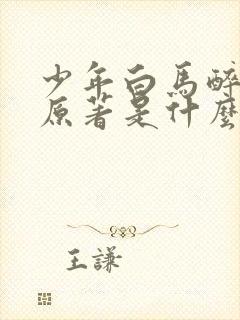 少年白馬醉
原著是什麼
王謙